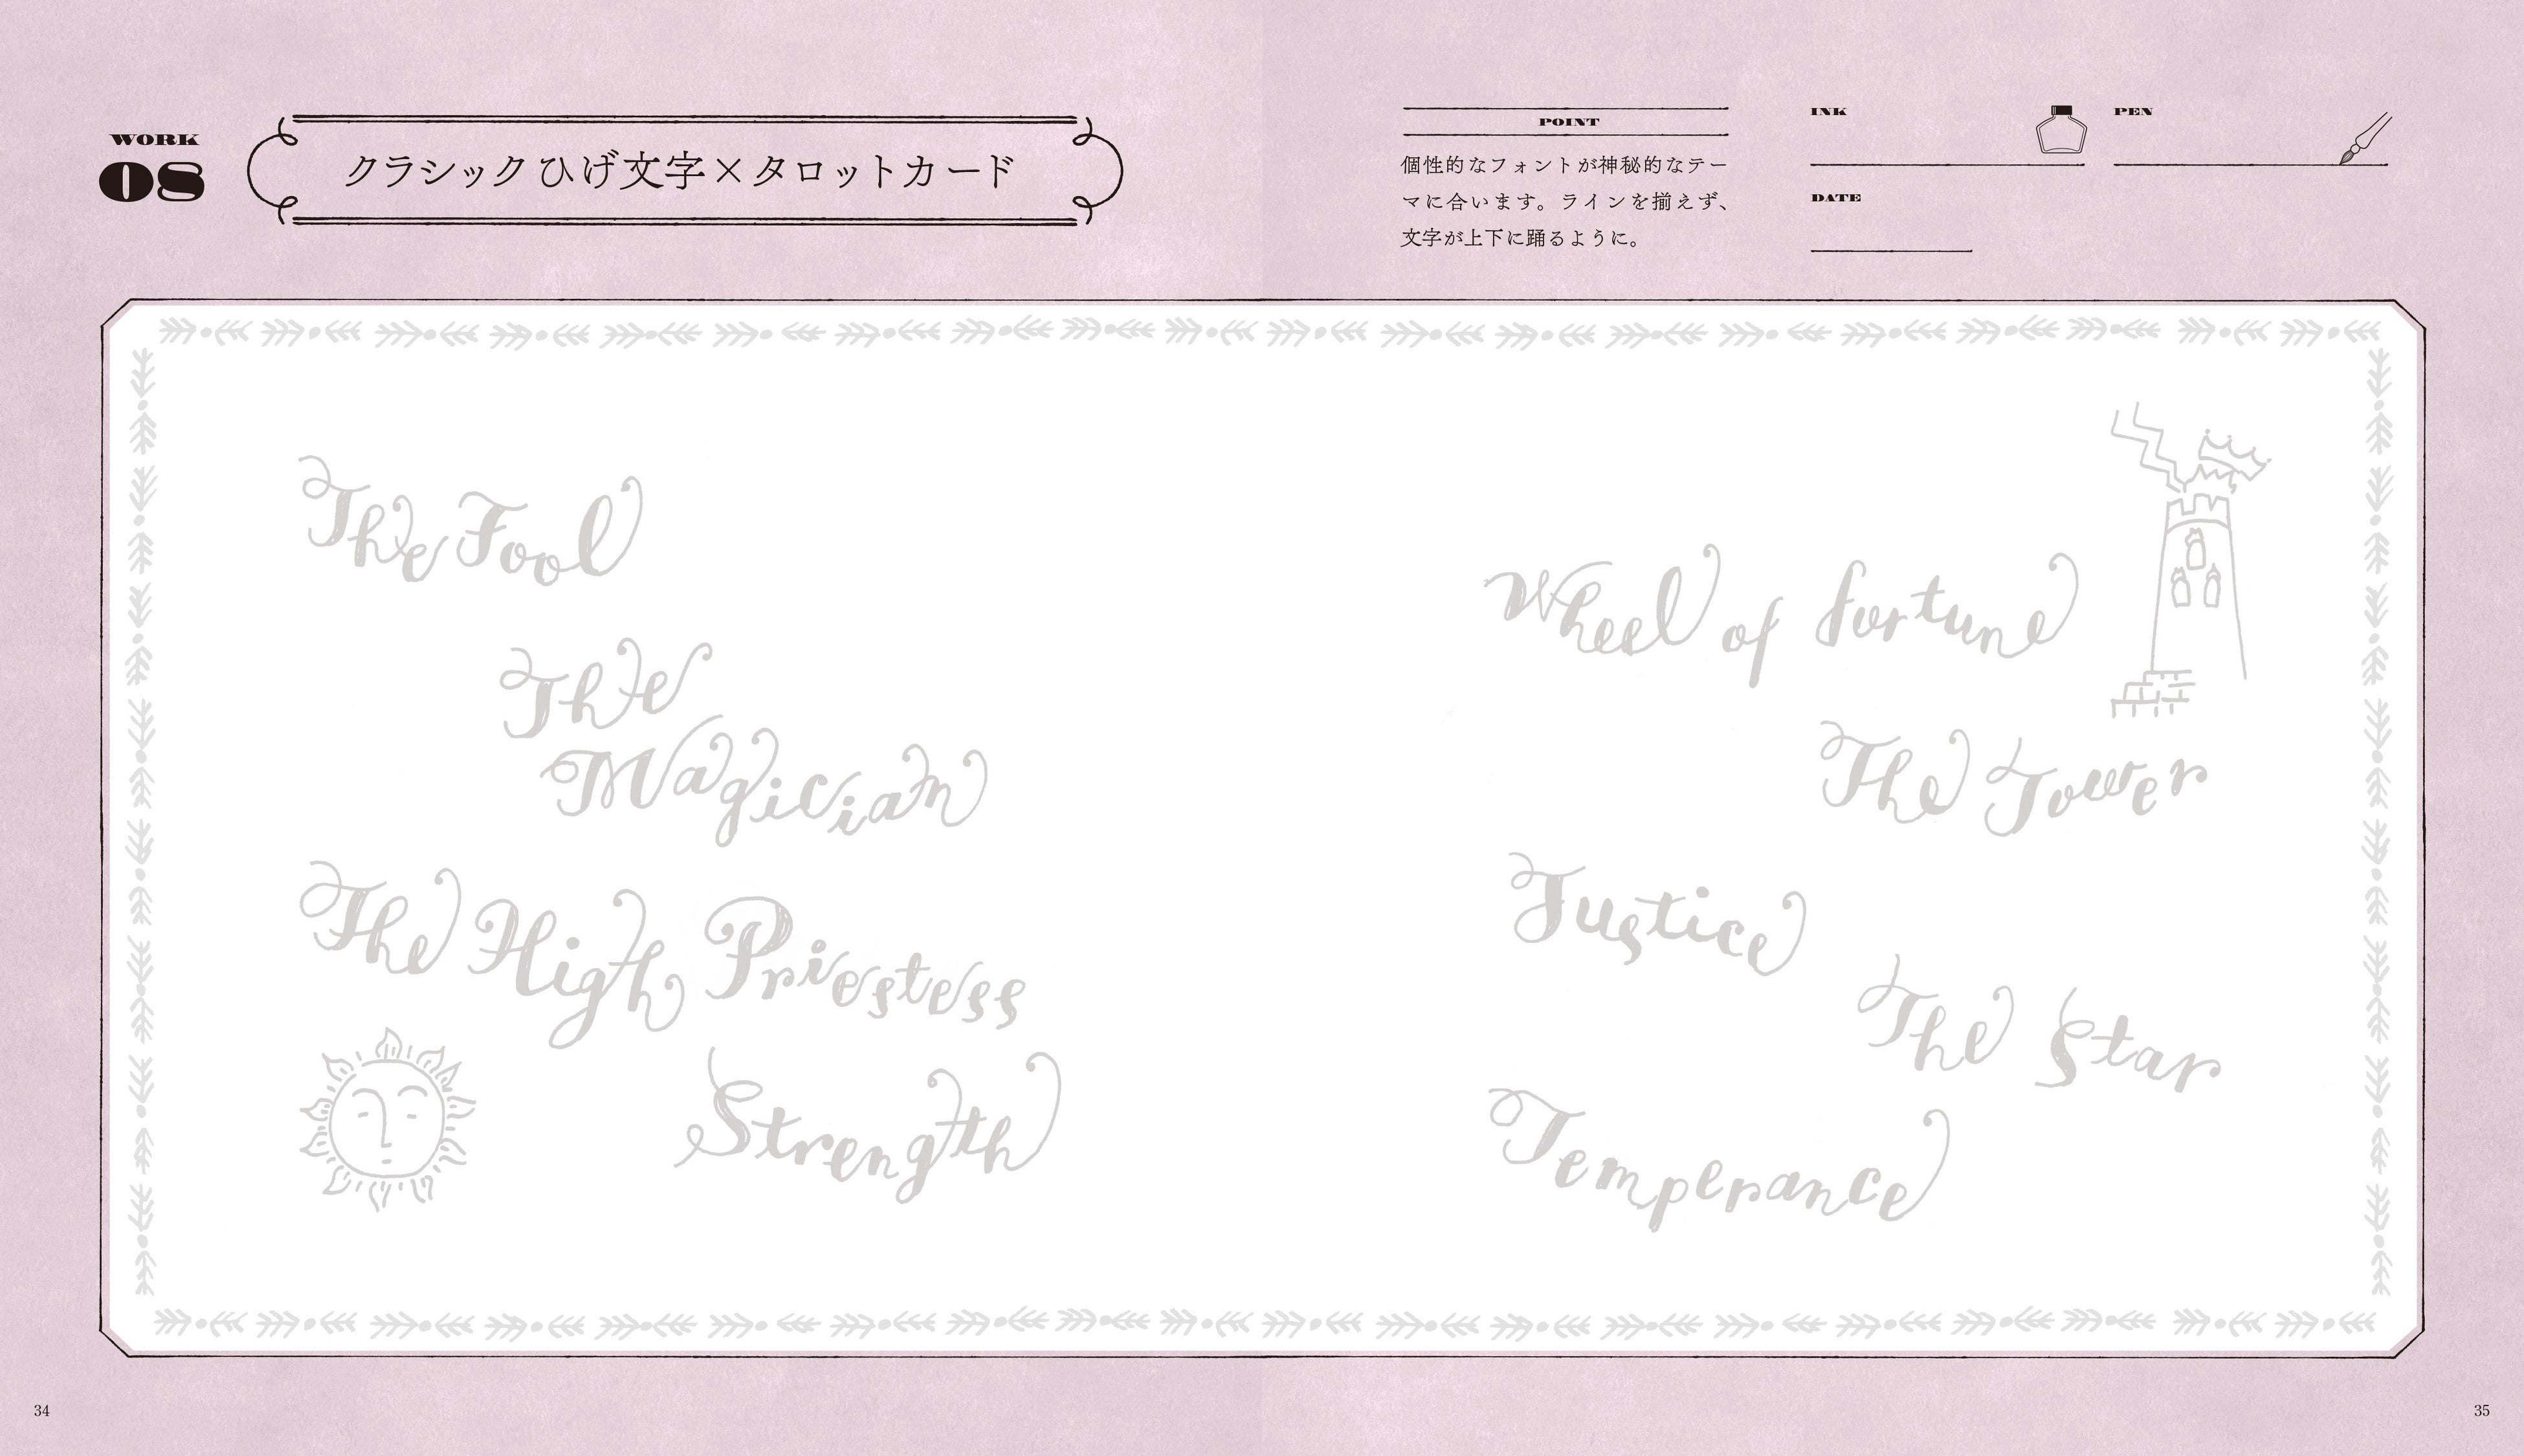 WORK
08
クラシックひげ文字×タロットカード
POINT
個性的なフォントが神秘的なテー
マに合います。ラインを揃えず、
文字が上下に踊るように。
INK
PEN
DATE
The Fool
The
Magician
The High Priestess
Strength
Wheel of fortune
The Tower
Justice
The Star
Temperance
34
35